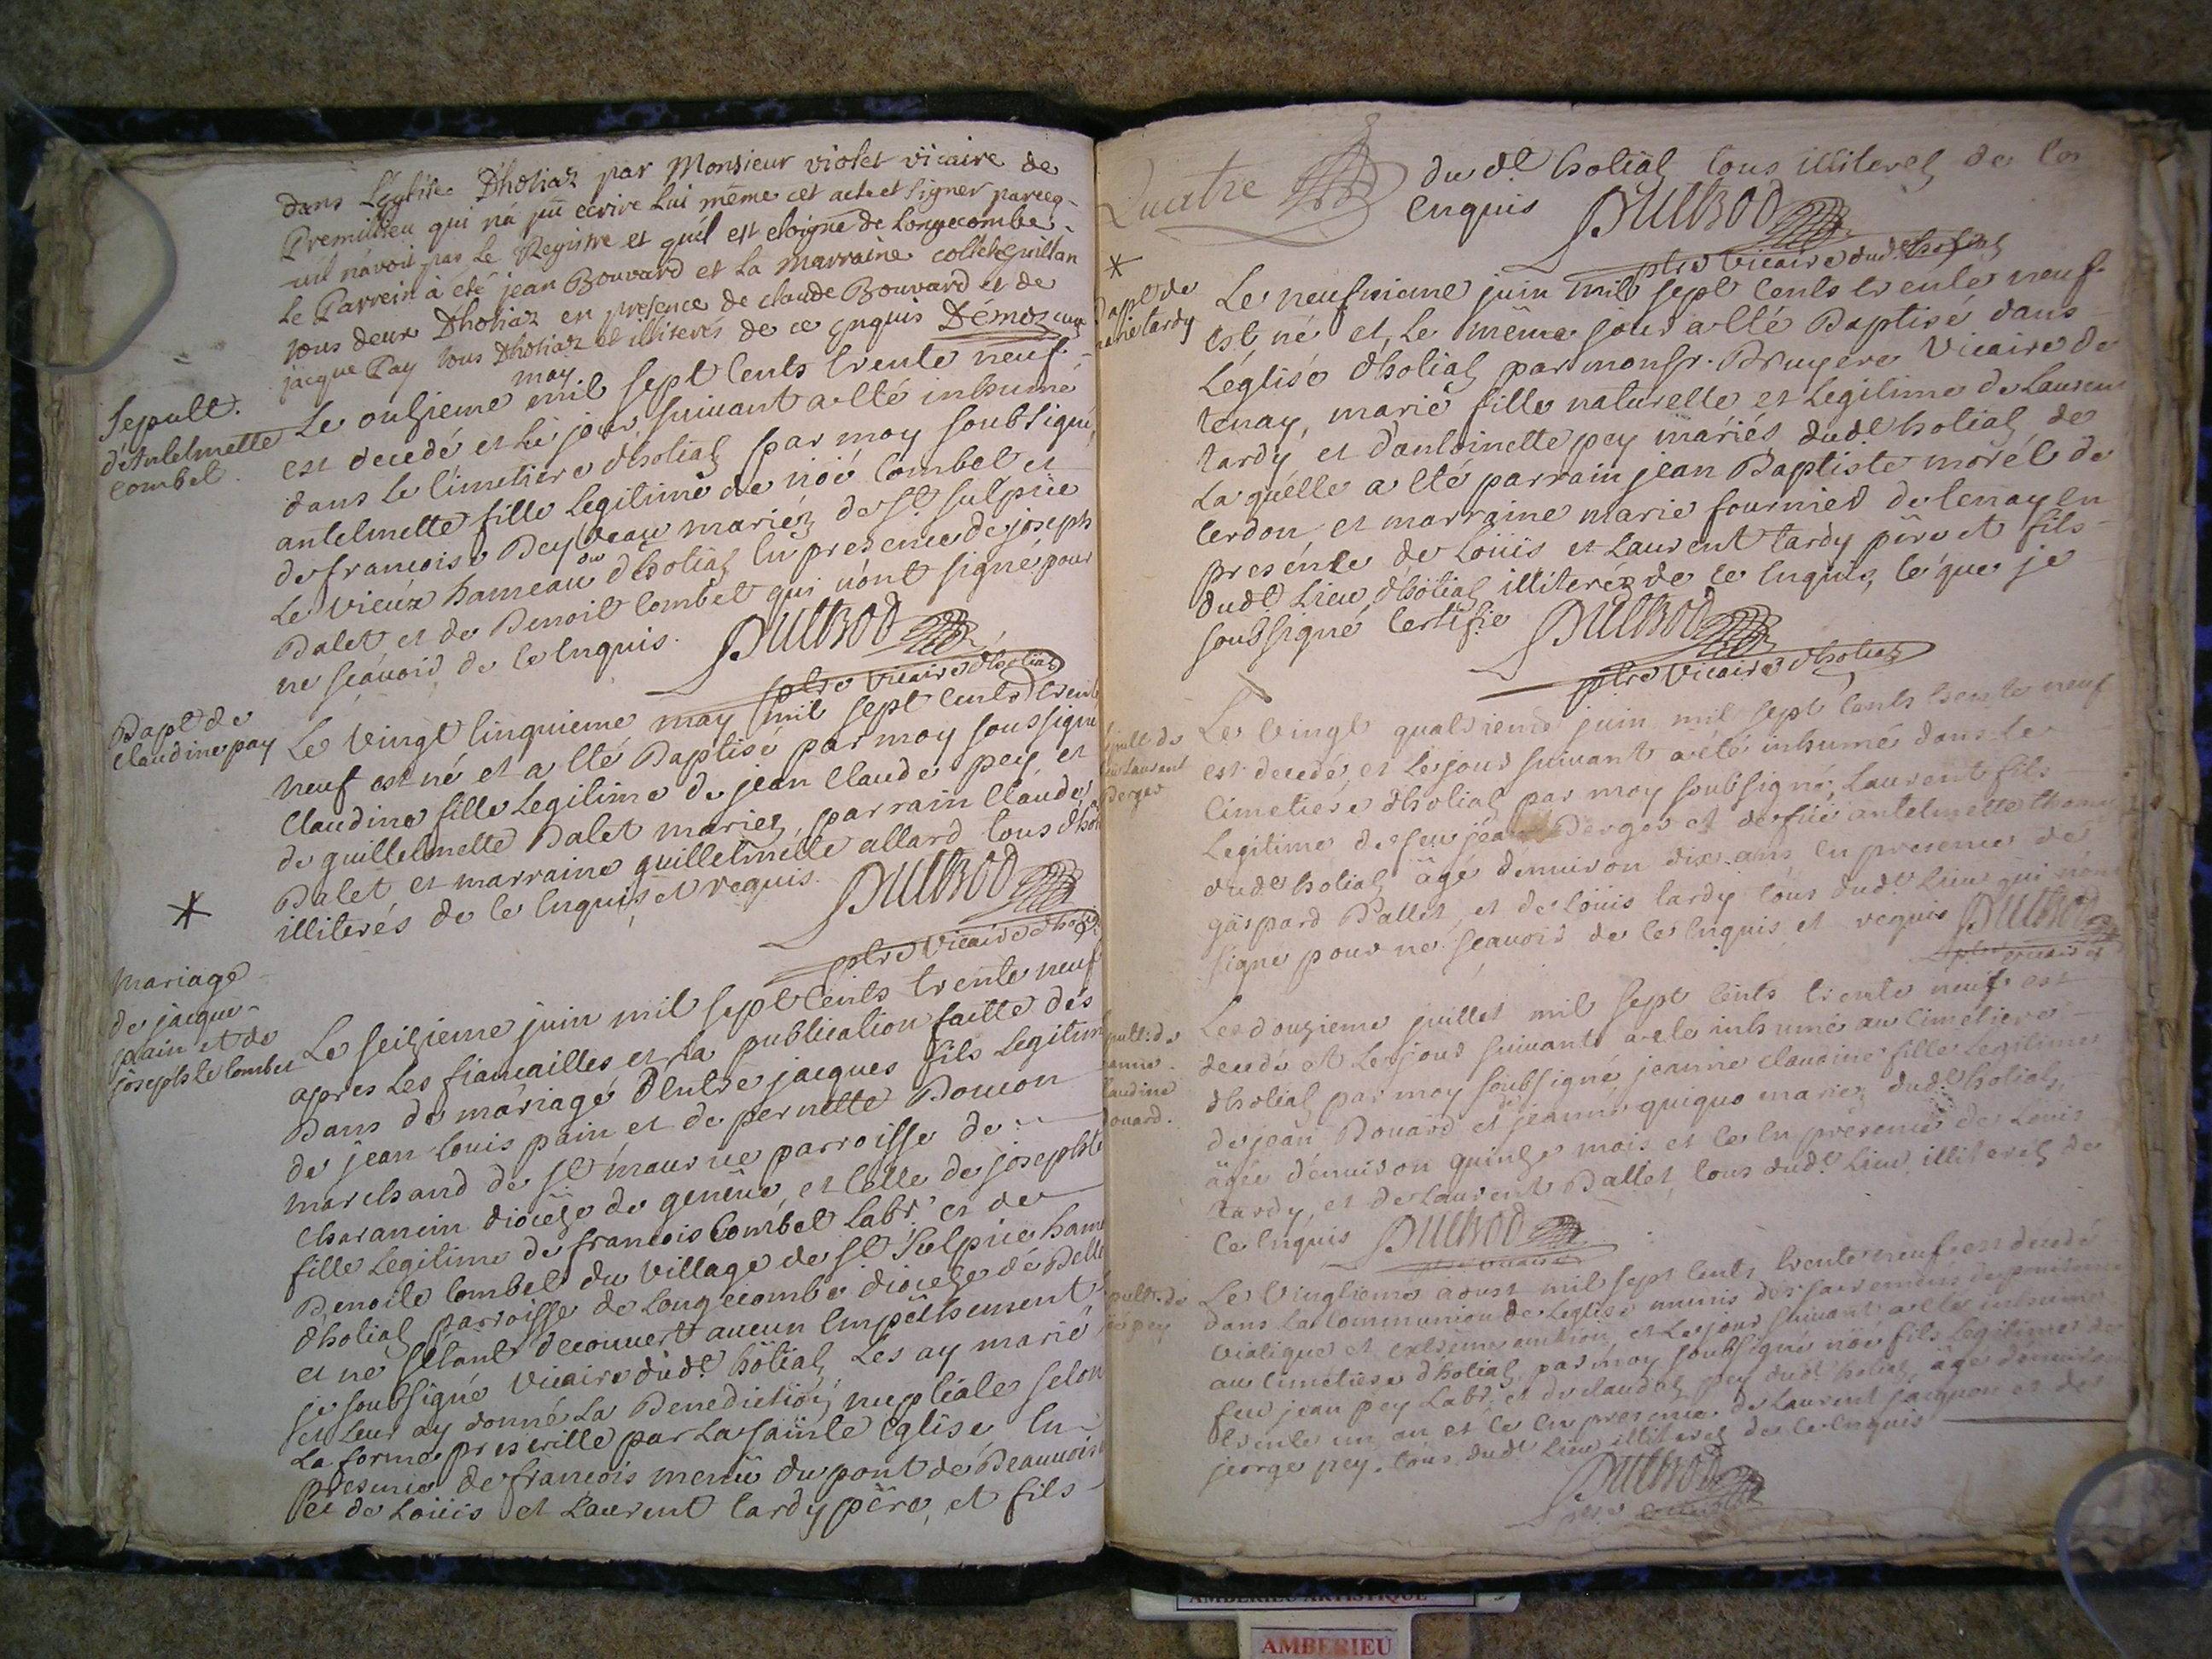 dans Léglise Dhotiaz par Monsieur violet vicaire de
Premillieu qui n'a pû ecrire Lui même cet acte et signer parceq-
-uil n'avoit pas Le Registre et qu'il est eloigné de Longecombe.
Le Parrein à été jean Bouvard et La Marraine
tous deux Dhotiaz en presence de claude Bouvard et de
jacque Pay tous Dhotiaz et illiterés de ce enquis
Sepult.
d'Antelmette
Combet.
Le onzieme may mil sept Cents trente neuf
est decedé et Le jour suivant a êté inhumé
dans Le Cimetiere d'hotiaz par moy soubsigné,
antelmette fille Legitime de noé Combet et
de francoise Pey mariéz de st Sulpice
Le vieux hameau d'hotiaz En presence de joseph
Balet et de Benoit Combet qui n'ont signé pour
ne scavoir de ce Enquis. Dulbod
ptre vicaire d'hotiaz
Bapt de
Claudine pay
Le vingt Cinquieme may mil sept Cents trente
neuf est né et a êté Baptisé par moy soussigné
Claudine fille Legitime de jean Claude pey et
de guillelmette Balet mariez, parrain Claude
Balet et marraine guillelmette allard tous d'hot
illiterés de ce Enquis et requis. Dulbod
ptre vicaire d'hot
*
Mariage
de jacque
pain et de
josephte Combet
Le seizieme juin mil sept Cents trente neuf
apres Les fiancailles et La publication faitte des
Bans de mariage D'entre jacques fils Legitime
de jean Louis pain et de pernette Doucon
marchand de st maurice parroisse de
Charancin diocèze de genêve, et Celle de josephte
fille Legitime de francois Combet Labr et de
Benoite Combet du village de st Sulpice ham
d'hotiaz parroisse de Longecombe diocèze de Belle
et ne s'etant decouvert aucun Empêchement
je soubsigné vicaire dudt hotiaz Les ay marié
et Leur ay donné La Benediction nuptiale selon
La forme prescritte par La sainte Eglise En
presence de francois menü du pont de Beauvoisi
et de Loüis et Laurent tardy pére, et fils
Quatre
du dt hotiaz tous illiterez de ce
Enquis Dulbod
ptre vicaire dudt hotiaz
*
Bapt de
marie tardy
Le neufvieme juin mil sept Cents trente neuf
est né et Le même jour a êté Baptisé dans
Léglise d'hotiaz par monsr. Bruyere vicaire de
tenay, marie fille naturelle et Legitime de Laurent
tardy et d'antoinette pey mariés dudt hotiaz de
Laquelle a êté parrain jean Baptiste morél de
Cerdon et marraine marie fournier de tenay En
presénce de Loüis et Laurent tardy pêre et fils
dudt Lieu d'hotiaz illiteréz de ce Enquis, ce que je
soubsigné Certifie Dulbod
ptre vicaire d'hotiaz
Sepult de
Laurent
Berger
Le vingt quatrieme juin mil sept Cents trente neuf
est decedé, et Le jour suivant a été inhumé dans Le
Cimetiére d'hotiaz par moy soubsigné, Laurent fils
Legitime de feu jean Berger et de füe antelmette
dudt hotiaz âgé d'environ dix ans En presence de
gaspard Ballet, et de Loüis tardy tous dudt Lieu qui n'ont
signe pour ne scavoir de ce Enquis et requis Dulbod
ptre vicaire
Sepult: de
jeanne
Claudine
Bouard.
Le douzieme juillet mil sept Cents trente neuf est
decedé et Le jour suivant a été inhumé au Cimetiere
d'hotiaz par moy soubsigné jeanne Claudine fille Legitime
de jean Bouard et de jeanne quiquo mariez dudt hotiaz,
âgée d'environ quinze mois et ce En présence de Louis
tardy, et de Laurent Ballet tous dudt Lieu illiteréz de
ce Enquis Dulbod
ptre vicaire
Sepult. de
noé pey
Le vingtieme aoust mil sept Cents trente neuf est décedé
dans La Communion de Leglise munis des sacremens de penitence
viatique et extreme onction, et Le jour suivant a êté inhumé
au Cimetiere d'hotiaz par moy soubsigné noé fils Legitime de
feu jean pey Labr, et de Claudaz pey dudt hotiaz âgé d'environ
trente un an et ce En presence de Laurent jacquon et de
jeorge pey. tous dudt Lieu illiterez de ce Enquis
Dulbod
AMBERIEU ARTISTIQUE
AMBERIEU